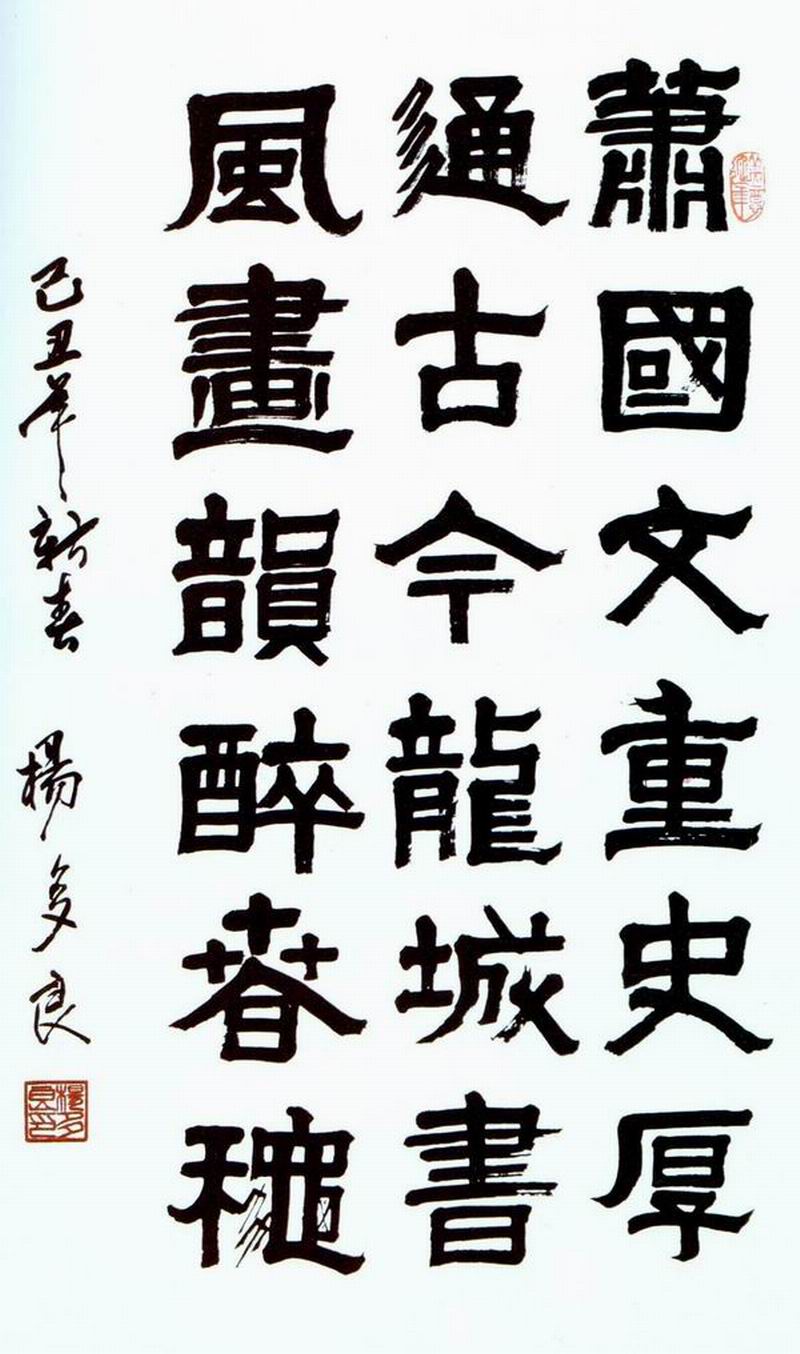 蕭國文重史厚
通古今龍城書
風畫韻醉春龝
己丑年新春 楊多良
楊多良印